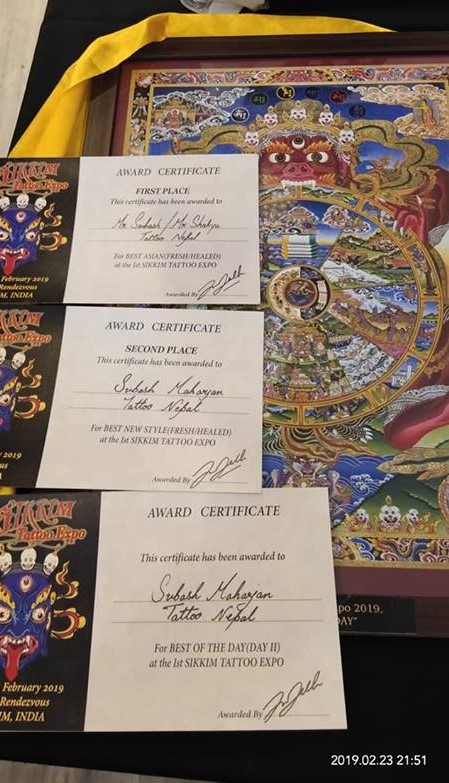 SIKKIM
Tattoo Expo
February 2019
Rendezvous
M, INDIA
AWARD CERTIFICATE
FIRST PLACE
This certificate has been awarded to
Mr Subash / Mr Shakya
Tattoo Nepal
For BEST ASIAN(FRESH/HEALED)
at the Ist SIKKIM TATTOO EXPO
Awarded By
Tattoo Expo
2019
AWARD CERTIFICATE
SECOND PLACE
This certificate has been awarded to
Subash Maharjan
Tattoo Nepal
For BEST NEW STYLE(FRESH/HEALED)
at the Ist SIKKIM TATTOO EXPO
Awarded By
SIKKIM
Tattoo Expo
February 2019
Rendezvous
IM, INDIA
AWARD CERTIFICATE
This certificate has been awarded to
Subash Maharjan
Tattoo Nepal
For BEST OF THE DAY(DAY II)
at the Ist SIKKIM TATTOO EXPO
Awarded By
xpo 2019,
DAY"
2019.02.23 21:51